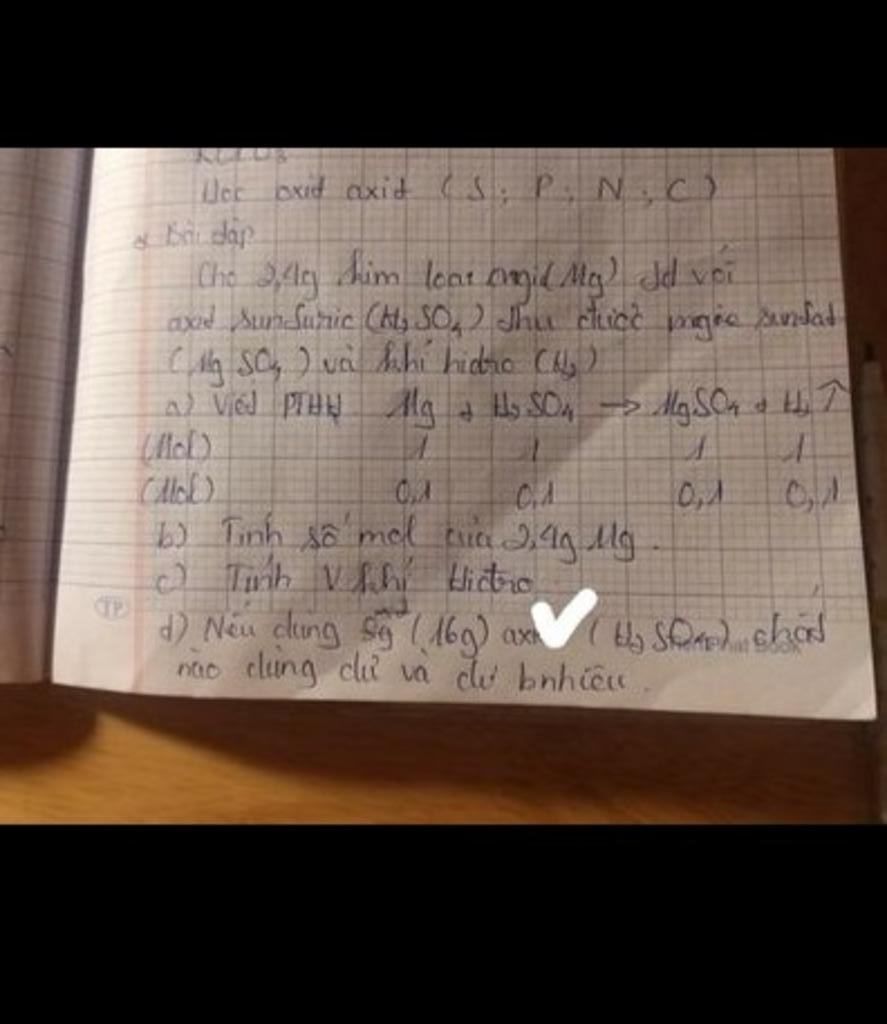 Học oxit axit (S; P; N; C)
* Bài tập
Cho 2,4g kim loại magiê (Mg) td với
axit sunfuric (H₂SO₄) thu được magiê sunfat
(MgSO₄) và khí hiđro (H₂)
a) Viết PTHH Mg + H₂SO₄ → MgSO₄ + H₂↑
(Mol) 1 1 1 1
(Mol) 0,1 0,1 0,1 0,1
b) Tính số mol của 2,4g Mg.
c) Tính V khí Hiđro
d) Nếu dùng (16g) (H₂SO₄) chất
nào dùng dư và dư bnhiêu.